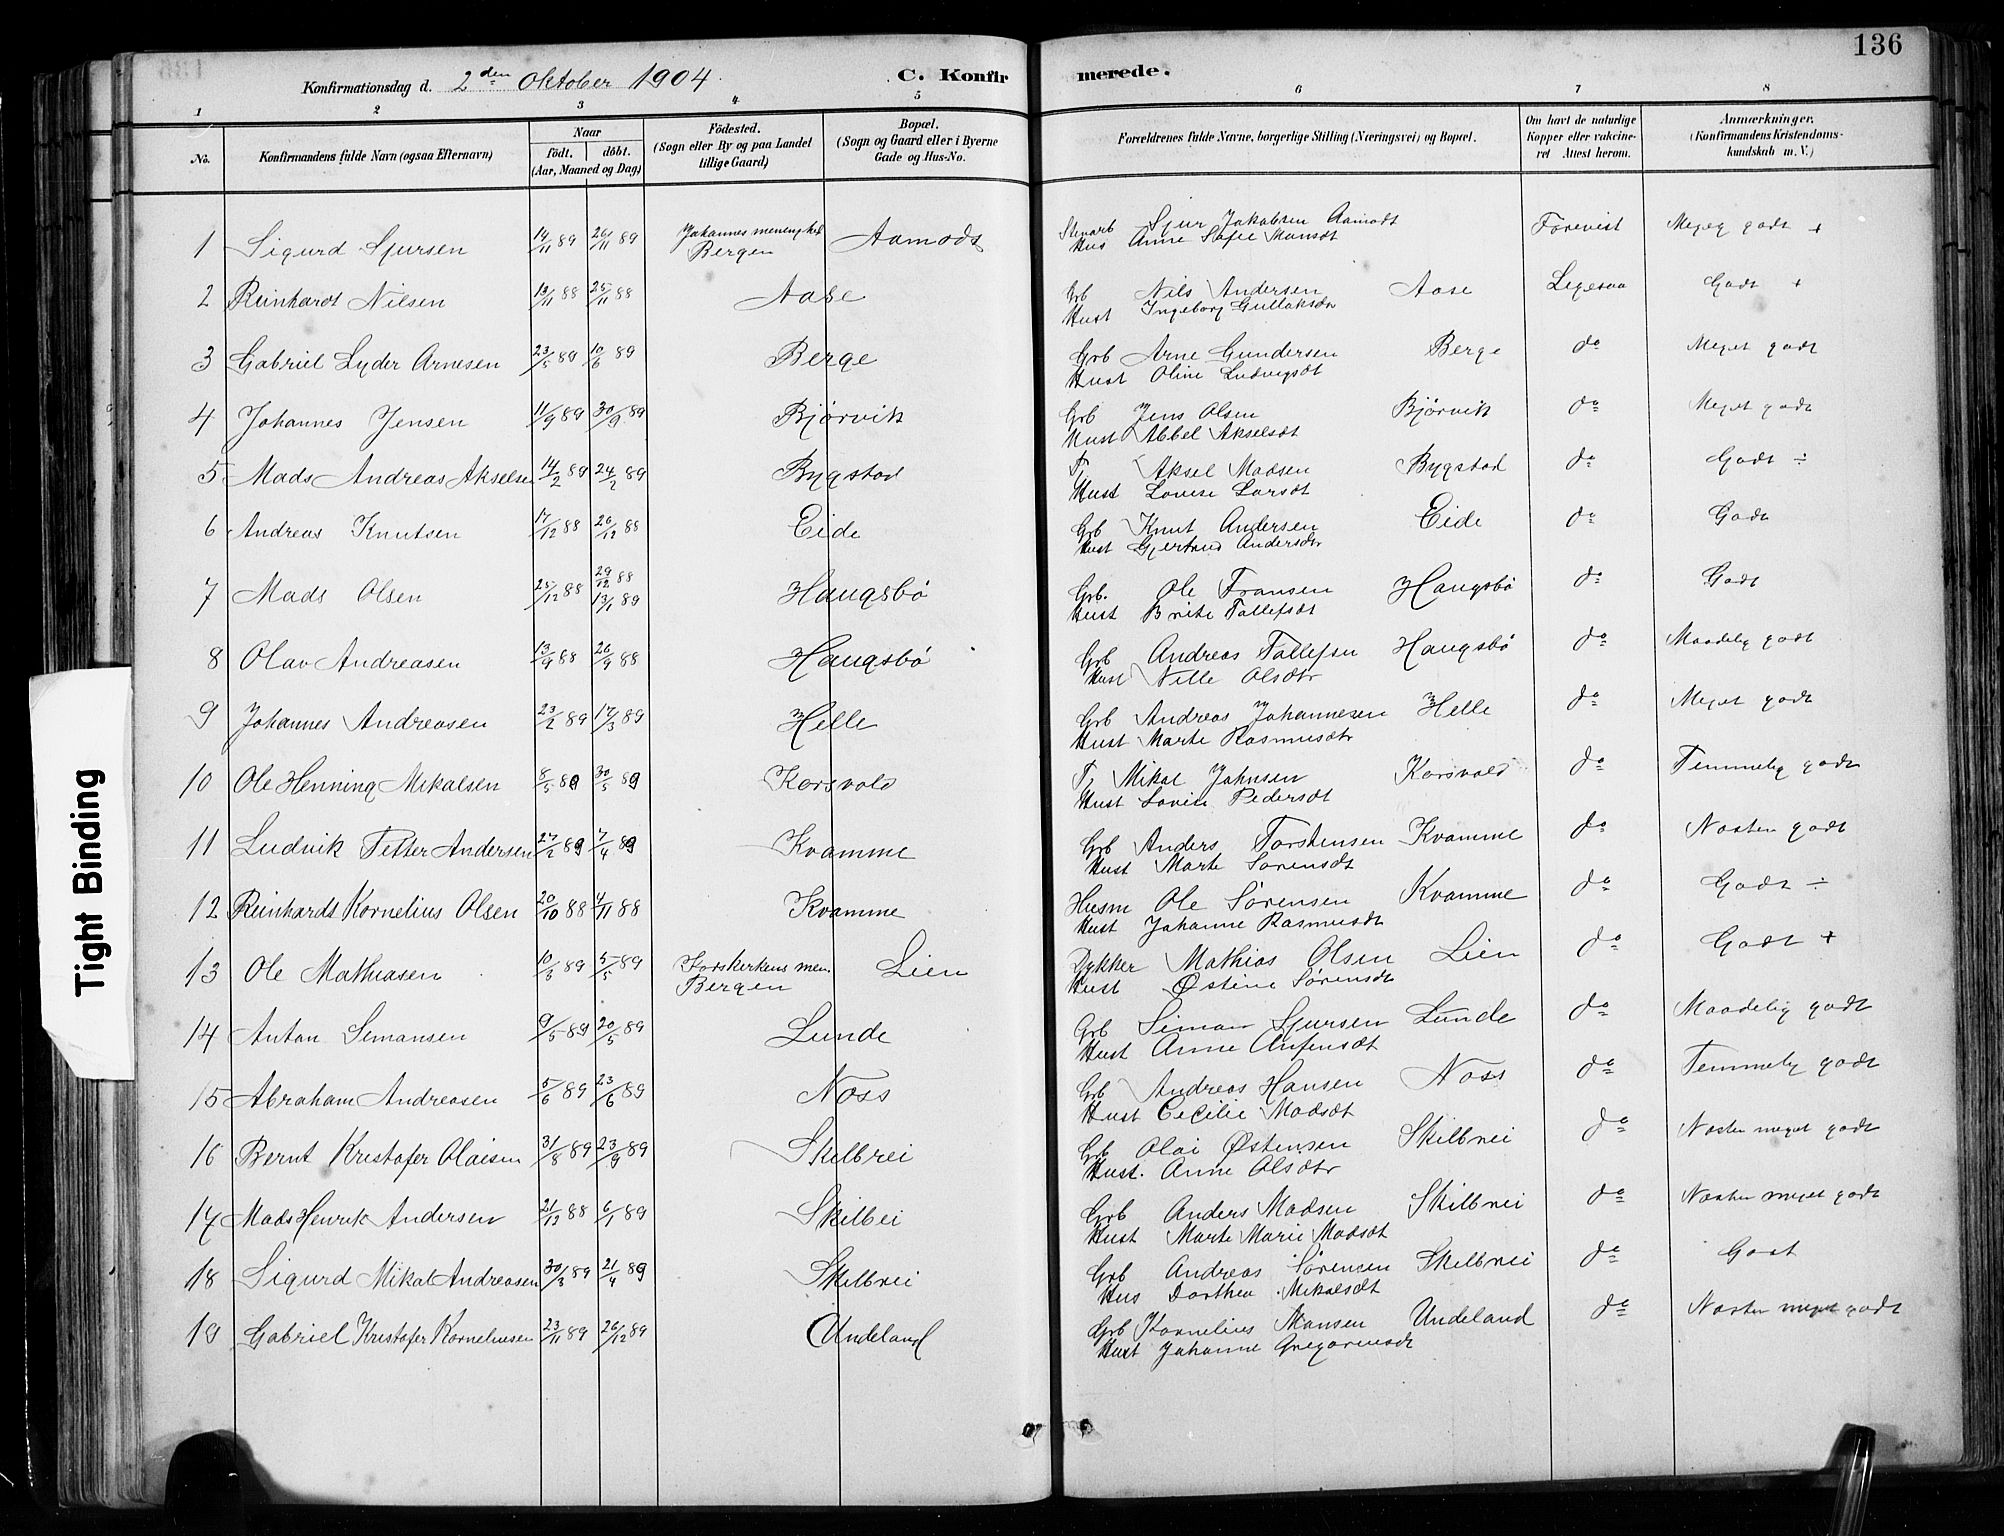 136
Konfirmationsdag d. 2den Oktober 1904. C. Konfirmerede.
1 2 3 4 5 6 7 8
No. Konfirmandens fulde Navn (ogsaa Efternavn) Naar født. døbt. (Aar, Maaned og Dag) Födested. (Sogn eller By og paa Landet tillige Gaard) Bopæl. (Sogn og Gaard eller i Byerne Gade og Hus-No. Forældrenes fulde Navne, borgerlige Stilling (Næringsvei) og Bopæl. Om havt de naturlige Kopper eller vakcineret Attest herom. Anmærkninger. (Konfirmandens Kristendomskundskab m. V.)
1 Sigurd Sjursen 14/11 89 26/11 89 Johannes Bergen Aamodt Sjur Jakobsen Aamodt Forevist Meget godt +
Hus Anne Sofie Monsdt
2 Reinhardt Nilsen 13/11 88 25/11 88 Aase Grb Nils Andersen Aase Ligesaa Godt +
Hust Ingeborg Gullaksdtr
3 Gabriel Lyder Arnesen 23/5 89 10/6 89 Berge Grb Arne Gundersen Berge do Meget godt
Hust Oline Ludvigsdt
4 Johannes Jensen 11/9 89 30/9 89 Bjørvik Grb Jens Olsen Bjørvik do Meget godt
Hust Abbel Akselsdt
5 Mads Andreas Akselsen 14/2 89 24/2 89 Bygstad F, Aksel Madsen Bygstad do Godt ÷
Hust Lovise Larsdt
6 Andreas Knutsen 17/12 88 26/12 88 Eide Grb Knut Andersen Eide do Godt
Hust Gjertrud Andersdtr
7 Mads Olsen 25/12 88 29/12 88 13/1 89 Haugsbø Grb. Ole Fransen Haugsbø do Godt
Hust Brite Tollefsdt
8 Olav Andreasen 13/9 88 26/9 88 Haugsbø Grb Andreas Tollefsen Haugsbø do Maadelig godt
Hust Nille Olsdtr
9 Johannes Andreasen 23/2 89 17/3 89 Helle Grb Andreas Johannesen Helle do Meget godt
Hust Marte Rasmusdtr
10 Ole Henning Mikalsen 8/5 89 30/5 89 Korsvold F, Mikal Johnsen Korsvold do Temmelig godt
Hust Lovise Pedersdt
11 Ludvik Petter Andersen 27/2 89 7/4 89 Kvamme Grb Anders Torstensen Kvamme do Næsten godt
Hust Marte Sørensdt
12 Reinhardt Kornelius Olsen 20/10 88 4/11 88 Kvamme Husm Ole Sørensen Kvamme do Godt ÷
Hust Johanne Rasmusdt
13 Ole Mathiasen 10/3 89 5/5 89 Korskirkens men. Bergen Lien Dykker Mathias Olsen Lien do Godt +
Hust Østine Sørensdt
14 Anton Simonsen 9/5 89 20/5 89 Lunde Grb Simon Sjursen Lunde do Maadelig godt
Hust Anne Anfensdt
15 Abraham Andreasen 5/6 89 23/6 89 Noss Grb Andreas Hansen Noss do Temmelig godt
Hust Cecilie Madsdt
16 Bernt Kristofer Olaisen 31/8 89 23/9 89 Skilbrei Grb Olai Østensen Skilbrei do Næsten meget godt
Hust. Anne Olsdtr
17 Mads Henrik Andersen 21/12 88 6/1 89 Skilbei Grb Anders Madsen Skilbrei do Næsten meget godt
Hust Marte Marie Madsdt
18 Sigurd Mikal Andreasen 30/3 89 21/4 89 Skilbrei Grb Andreas Sørensen Skilbrei do Godt
Hus Dorthea Mikalsdt
19 Gabriel Kristofer Korneliusen 23/11 89 26/12 89 Undeland Grb Kornelius Monsen Undeland do Næsten meget godt
Hust Johanne Gregoriusdt
Tight Binding